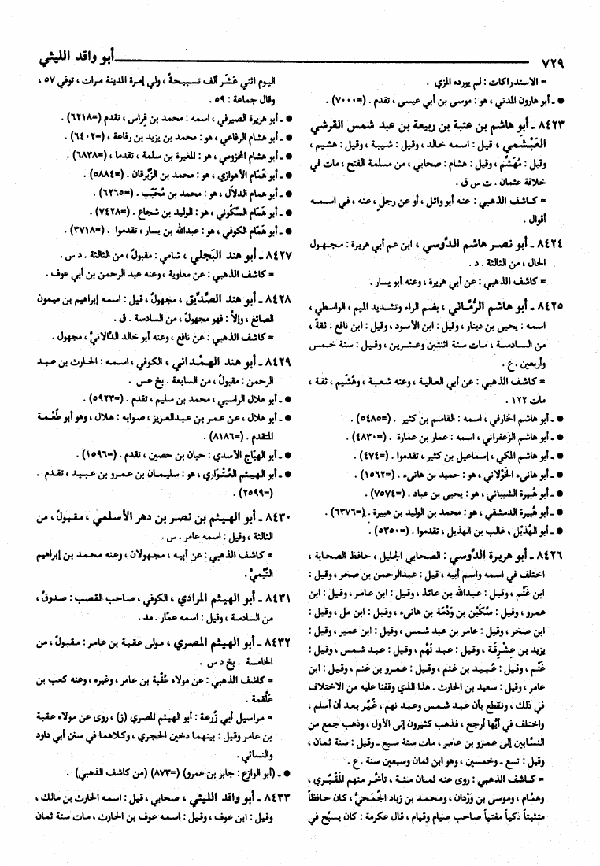 ٧٢٩
أبو واقد الليثي
= الاستدراكات : لم يورده المزي .
● ـ أبو هارون المدني ، هو : موسى بن أبي عيسى ، تقدم . (=٧٠٠٠)
٨٤٢٣ ـ أبو هاشم بن عتبة بن ربيعة بن عبد شمس القرشي
العبشمي ، قيل : اسمه خالد ، وقيل : شيبة ، وقيل : هشيم ،
وقيل : مُهَشّم ، وقيل : هشام ، صحابي ، من مسلمة الفتح ، مات في
خلافة عثمان . ت س ق .
= كاشف الذهبي : عنه أبو وائل ، أو عن رجل ، عنه ، في اسمه
أقوال .
٨٤٢٤ ـ أبو نصر هاشم الدَّوسي ، ابن عم أبي هريرة : مجهول
الحال ، من الثالثة . د .
= كاشف الذهبي : عن أبي هريرة ، وعنه أبو يسار .
٨٤٢٥ ـ أبو هاشم الرُّماني ، بضم الراء وتشديد الميم ، الواسطي ،
اسمه : يحيى بن دينار ، وقيل : ابن الأسود ، وقيل : ابن نافع : ثقة ،
من السادسة ، مات سنة اثنتين وعشرين ، وقيل : سنة خمس
وأربعين . ع .
= كاشف الذهبي : عن أبي العالية ، وعنه شعبة ، وهُشَيم ، ثقة ،
مات ١٢٢ .
● ـ أبو هاشم الخارفي ، اسمه : القاسم بن كثير . (=٥٤٨٥)
● ـ أبو هاشم الزعفراني ، اسمه : عمار بن عمارة . (=٤٨٣٠)
● ـ أبو هاشم المكي ، إسماعيل بن كثير ، تقدموا . (=٤٧٤)
● ـ أبو هانىء الخَوْلاني ، هو : حميد بن هانىء . (=١٥٦٢)
● ـ أبو هُبيرة الشيباني ، هو : يحيى بن عباد . (=٧٥٧٤)
● ـ أبو هُبيرة الدمشقي ، هو : محمد بن الوليد بن هبيرة . (=٦٣٧٦)
● ـ أبو الهُذَيْل ، غالب بن الهذيل ، تقدموا . (=٥٣٥٠)
٨٤٢٦ ـ أبو هريرة الدَّوسي : الصحابي الجليل ، حافظ الصحابة ،
اختلف في اسمه واسم أبيه ، قيل : عبدالرحمن بن صخر ، وقيل :
ابن غَنْم ، وقيل : عبدالله بن عائذ ، وقيل : ابن عامر ، وقيل : ابن
عمرو ، وقيل : سُكَيْن بن وَدْمَة بن هانىء ، وقيل : ابن مل ، وقيل :
ابن صخر ، وقيل : عامر بن عبد شمس ، وقيل : ابن عمير ، وقيل :
يزيد بن عِشْرِقَة ، وقيل : عبد نَهْم ، وقيل : عبد شمس ، وقيل :
غَنْم ، وقيل : عُبيد بن غنم ، وقيل : عمرو بن غنم ، وقيل : ابن
عامر ، وقيل : سعيد بن الحارث . هذا الذي وقفنا عليه من الاختلاف
في ذلك ، ونقطع بأن عبد شمس وعبد نهم ، غُيّر بعد أن أسلم ،
واختلف في أيها أرجح ، فذهب كثيرون إلى الأول ، وذهب جمع من
النسَّابين إلى عمرو بن عامر . مات سنة سبع ، وقيل : سنة ثمان ،
وقيل : تسع ـ وخمسين ، وهو ابن ثمان وسبعين سنة . ع .
= كاشف الذهبي : روى عنه ثمان مئة ، تأخر منهم المَقْبُري ،
وهمام ، وموسى بن وَرْدان ، ومحمد بن زياد الجُمَحيُّ ، كان حافظاً
متثبتاً ذكياً مفتياً صاحب صيام وقيام ، قال عكرمة : كان يسبح في
اليوم اثني عشر ألف تسبيحة ، ولي إمرة المدينة مرات ، توفي ٥٧ ،
وقال جماعة : ٥٩ .
● ـ أبو هريرة الصيرفي ، اسمه : محمد بن فِراس ، تقدم (=٦٢١٨) .
● ـ أبو هشام الرفاعي ، هو : محمد بن يزيد بن رفاعة ، (=٦٤٠٢) .
● ـ أبو هشام المخزومي ، هو : المغيرة بن سلمة ، تقدما ، (=٦٨٣٨) .
● ـ أبو همَّام الأهوازي ، هو : محمد بن الزِّبْرِقان . (=٥٨٨٤)
● ـ أبو همام الدلال ، هو : محمد بن مُحَبَّب . (=٦٢٦٥)
● ـ أبو همَّام السَّكوني ، هو : الوليد بن شجاع . (=٧٤٢٨)
● ـ أبو همَّام الكوفي ، هو : عبدالله بن يسار ، تقدموا . (=٣٧١٨)
٨٤٢٧ ـ أبو هند البَجَلي ، شامي : مقبول ، من الثالثة . د س .
= كاشف الذهبي : عن معاوية ، وعنه عبد الرحمن بن أبي عوف .
٨٤٢٨ ـ أبو هند الصدِّيق ، مجهول ، قيل : اسمه إبراهيم بن ميمون
الصائغ ، وإلاَّ : فهو مجهول ، من السادسة . ق .
= كاشف الذهبي : عن نافع ، وعنه أبو خالد الدَّالانيُّ ، مجهول .
٨٤٢٩ ـ أبو هند الهَمْداني ، الكوفي ، اسمه : الحارث بن عبد
الرحمن : مقبول ، من السابعة . بخ عس .
● ـ أبو هلال الراسبي ، محمد بن سليم ، تقدم . (=٥٩٢٣)
● ـ أبو هلال ، عن عمر بن عبدالعزيز ، صوابه : هلال ، وهو أبو طُعْمة
المتقدم . (=٨١٨٦)
● ـ أبو الهيَّاج الأسدي : حيان بن حصين ، تقدم . (=١٥٩٦)
● ـ أبو الهيثم العُتْوَاري ، هو : سليمان بن عمرو بن عبيد ، تقدم .
(=٢٥٩٩) .
٨٤٣٠ ـ أبو الهيثم بن نصر بن دهر الأسلمي ، مقبول ، من
الثالثة ، وقيل : اسمه عامر . س .
= كاشف الذهبي : عن أبيه ، مجهولان ، وعنه محمد بن إبراهيم
التَّيْميُّ .
٨٤٣١ ـ أبو الهيثم المرادي ، الكوفي ، صاحب القصب : صدوق ،
من السادسة ، وقيل : اسمه عمَّار . مد .
٨٤٣٢ ـ أبو الهيثم المصري ، مولى عقبة بن عامر : مقبول ، من
الخامسة . بخ د س .
= كاشف الذهبي : عن مولاه عُقْبة بن عامر ، وغيره ، وعنه كعب بن
علقمة .
= مراسيل أبي زُرعة : أبو الهيثم المصري (ز) ، روى عن مولاه عقبة
بن عامر وقيل : بينهما دخين الحجري ، وكلاهما في سنن أبي داود
والنسائي .
● ـ (أبو الوازع : جابر بن عمرو) (=٨٧٣) (من كاشف الذهبي)
٨٤٣٣ ـ أبو واقد الليثي ، صحابي ، قيل : اسمه الحارث بن مالك ،
وقيل : ابن عوف ، وقيل : اسمه عوف بن الحارث ، مات سنة ثمان